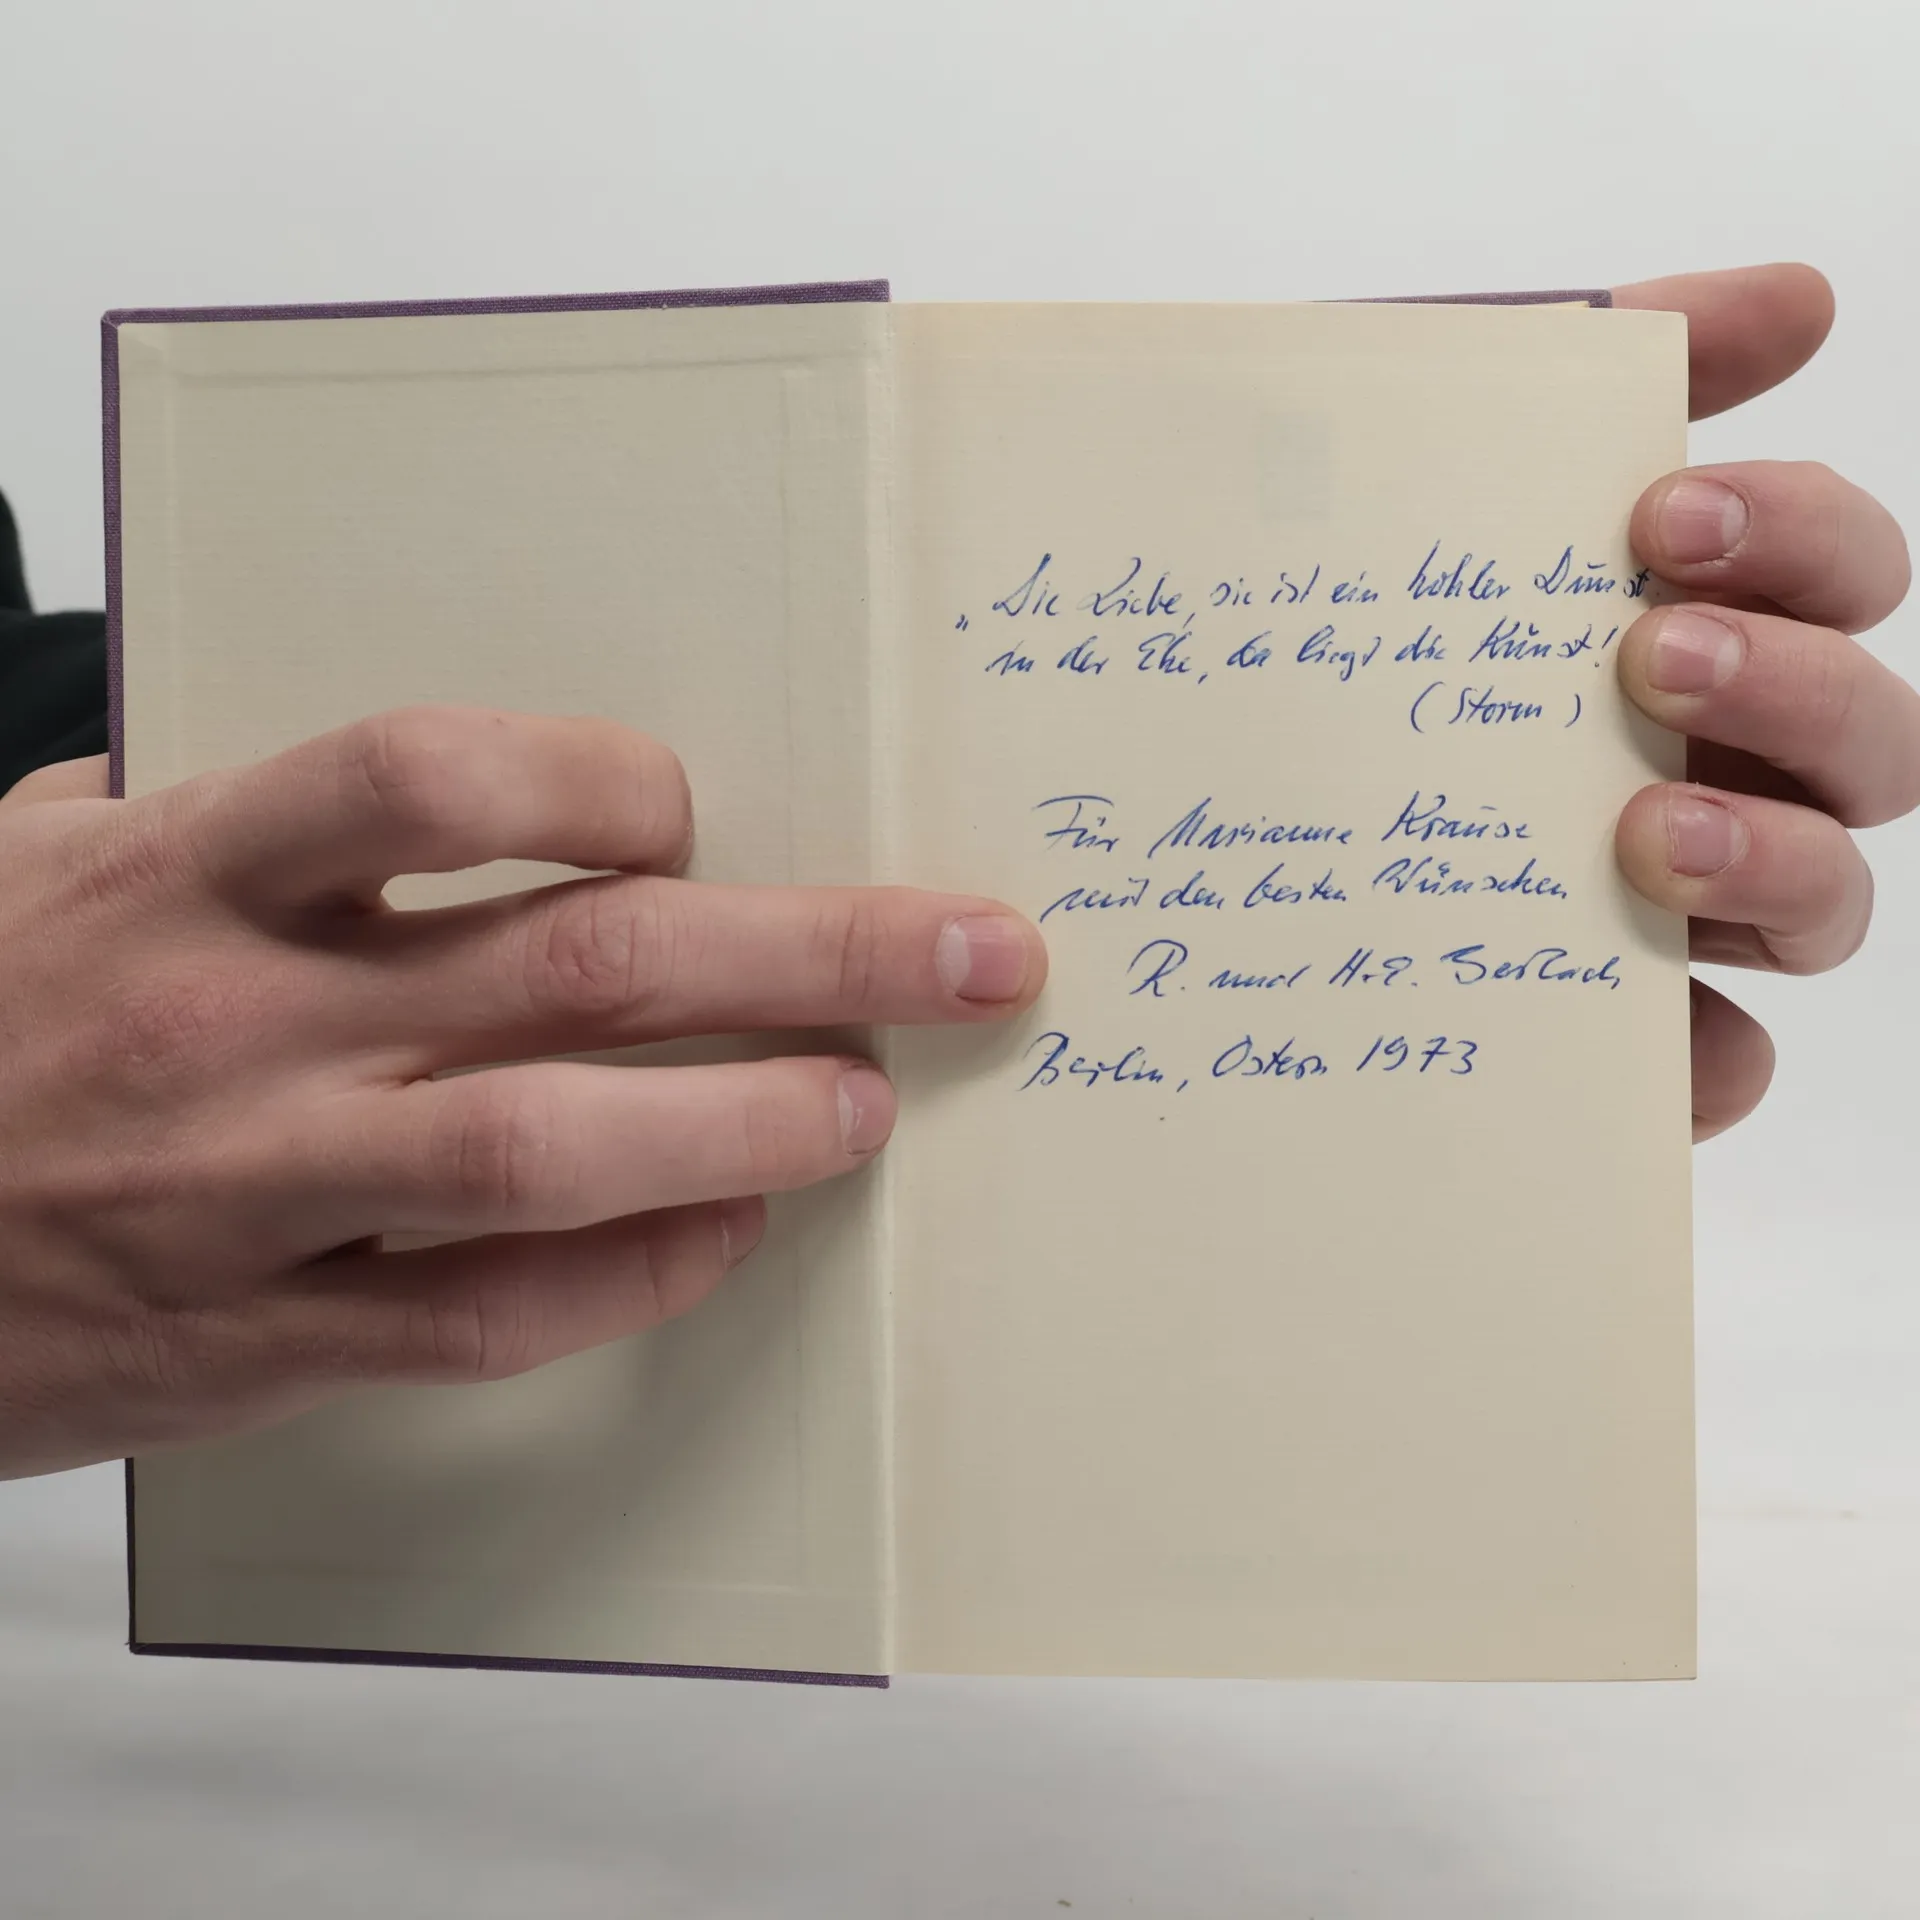 „Die Liebe, sie ist ein hohler Dunst
in der Ehe, da liegt die Kunst!
(Storm)
Für Marianne Krause
mit den besten Wünschen
R. und H.-E. Gerlach
Berlin, Ostern 1973